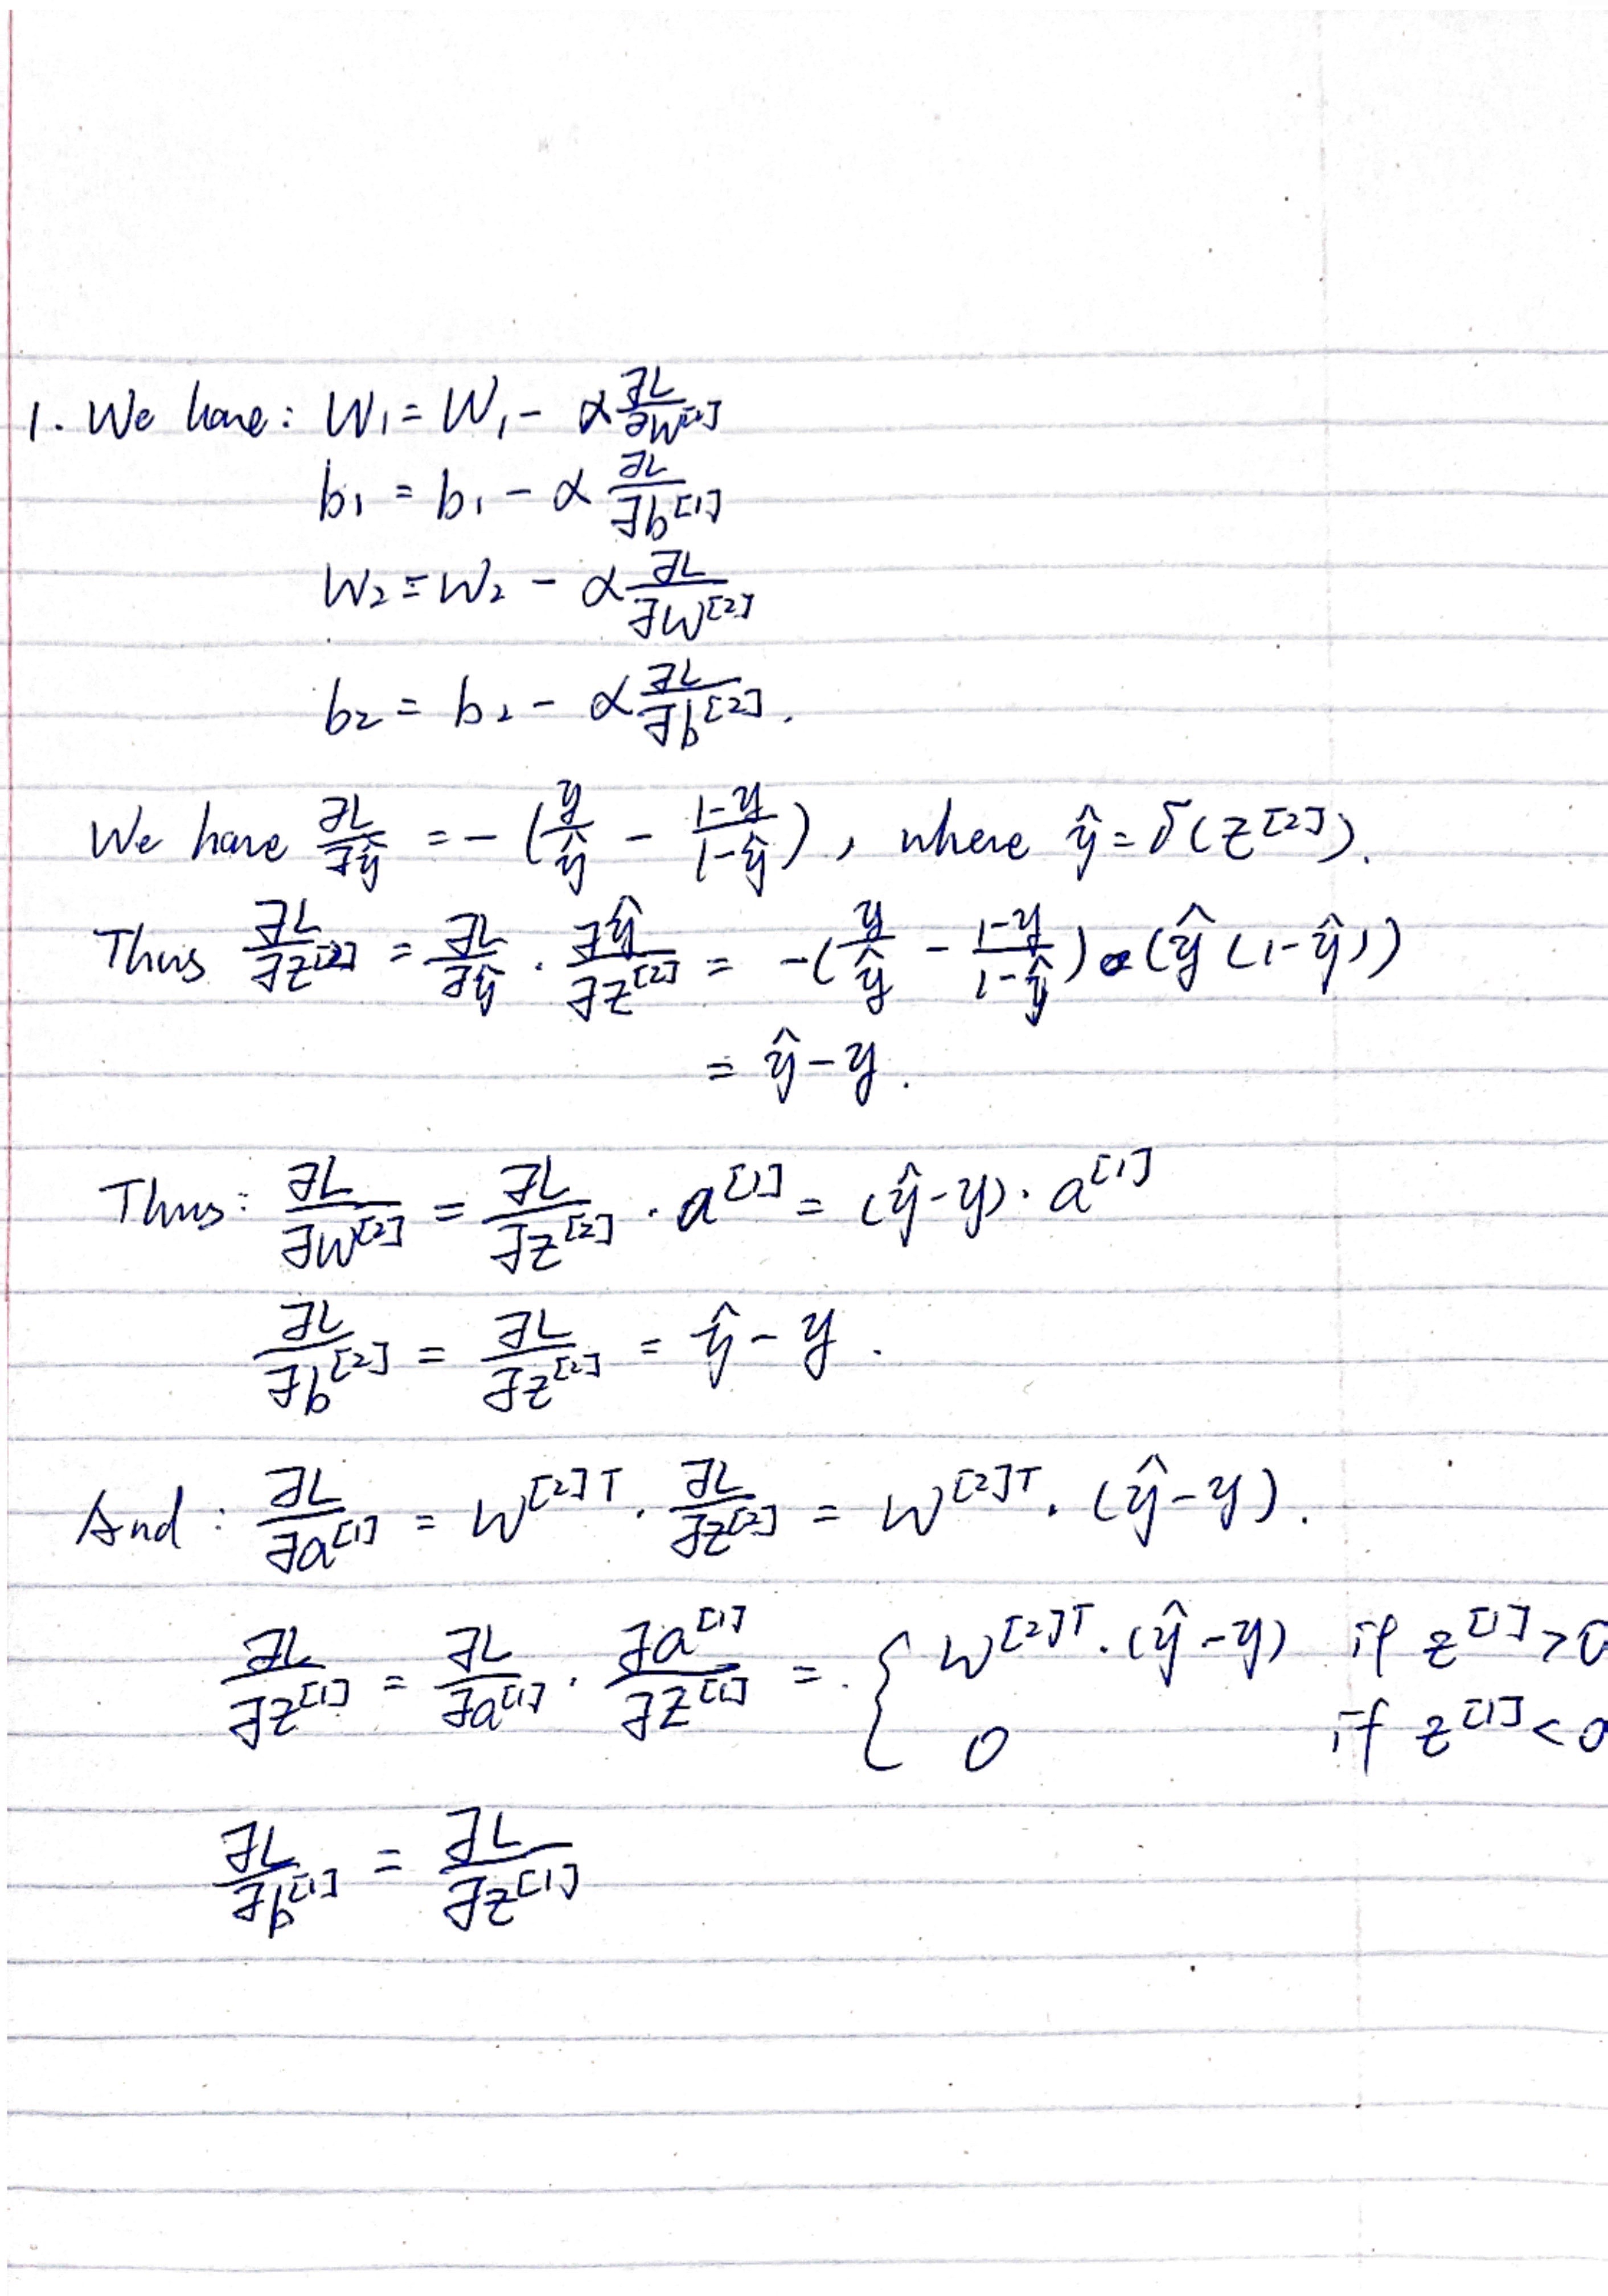 1. We have: W₁ = W₁ - α ∂L/∂W^[1]
b₁ = b₁ - α ∂L/∂b^[1]
W₂ = W₂ - α ∂L/∂W^[2]
b₂ = b₂ - α ∂L/∂b^[2].
We have ∂L/∂ŷ = -(y/ŷ - (1-y)/(1-ŷ)), where ŷ = δ(z^[2]).
Thus ∂L/∂z^[2] = ∂L/∂ŷ · ∂ŷ/∂z^[2] = -(y/ŷ - (1-y)/(1-ŷ)) · (ŷ(1-ŷ))
= ŷ - y.
Thus: ∂L/∂W^[2] = ∂L/∂z^[2] · a^[1] = (ŷ-y) · a^[1]
∂L/∂b^[2] = ∂L/∂z^[2] = ŷ - y.
And: ∂L/∂a^[1] = W^[2]T · ∂L/∂z^[2] = W^[2]T · (ŷ-y).
∂L/∂z^[1] = ∂L/∂a^[1] · ∂a^[1]/∂z^[1] = { W^[2]T · (ŷ-y) if z^[1] > 0
0 if z^[1] < 0
∂L/∂b^[1] = ∂L/∂z^[1]